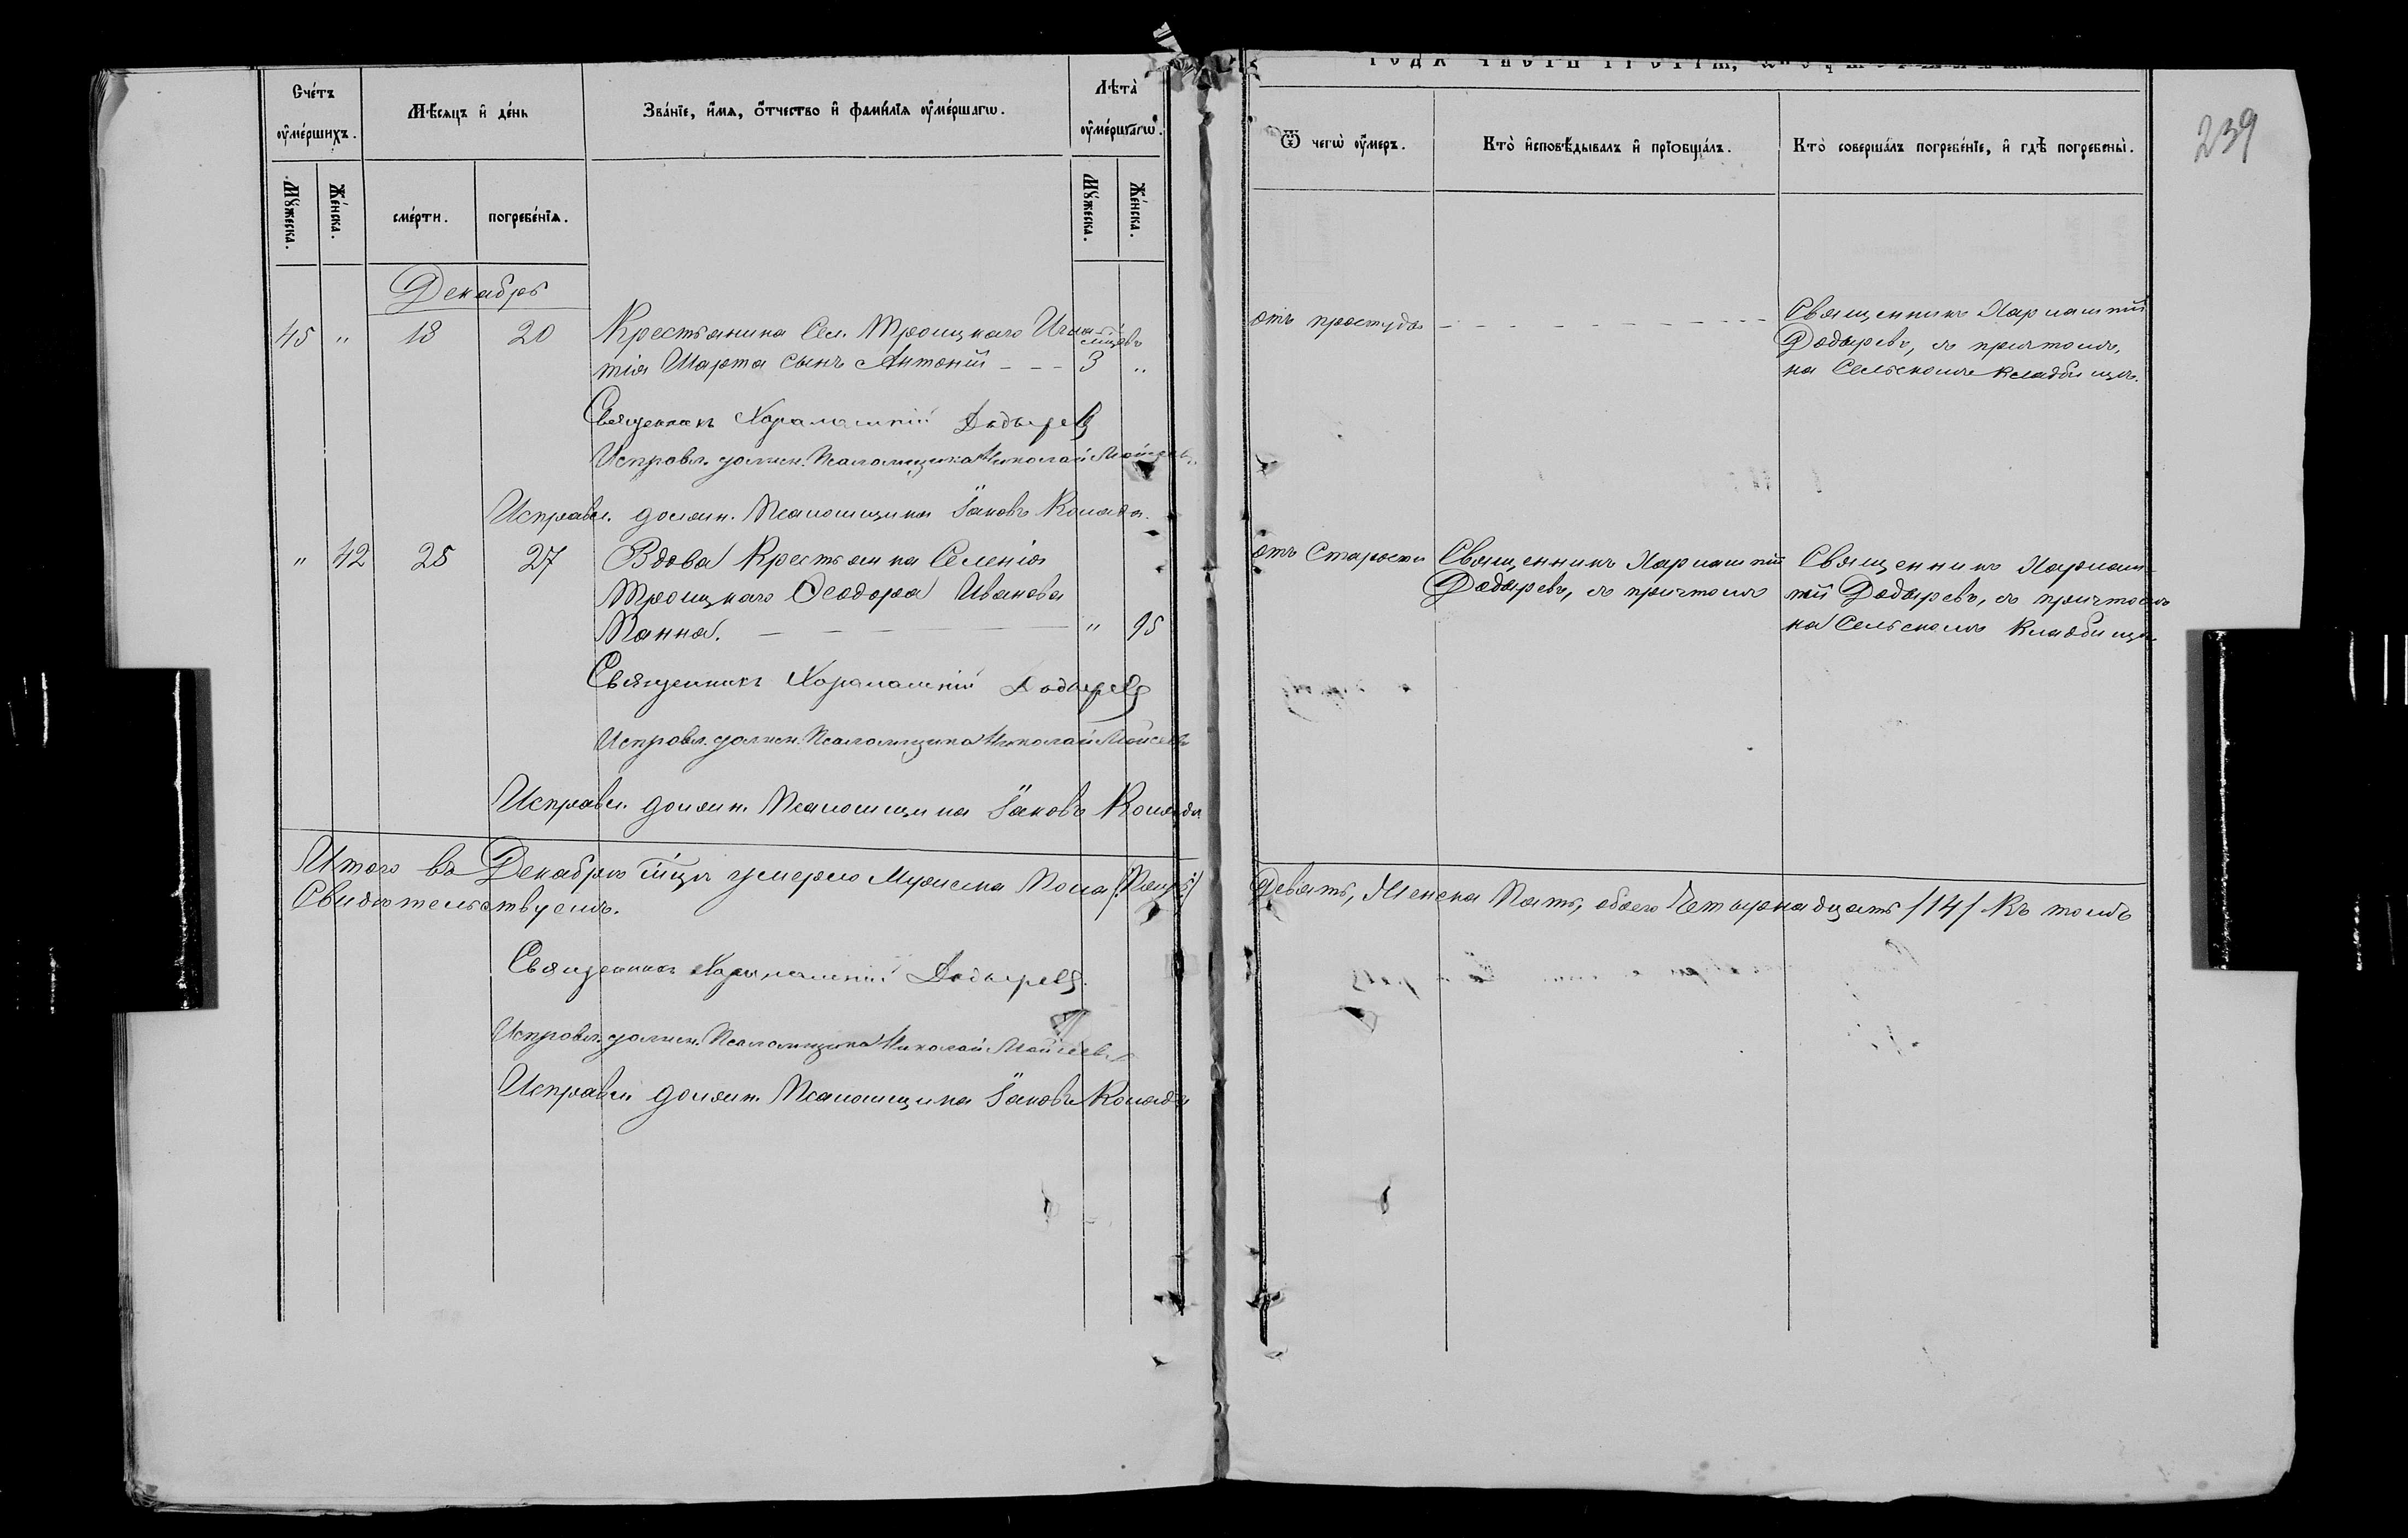 Счетъ
оумершихъ.
Мѣсяцъ и день
Званіе, имя, отчество и фамилія оумершагѡ.
Лѣта
оумершагѡ.
Мужеска.
Женска.
смерти.
погребенія.
Мужеска.
Женска.
Декабрь
45 " 18 20 Крестьянина Сел. Троицкаго Игна-
тія Шарта сынъ Антоній - - - 3 "
Священникъ Харалампій Додыревъ
Исправл. должн. Псаломщика Николай Мойсеевъ
Исправл. должн. Псаломщика Іаковъ Коляда.
" 42 25 27 Вдова Крестьянка Селенія
Троицкаго Ѳеодора Иванова
Панна. " 95
Священникъ Харалампій Додыревъ
Исправл. должн. Псаломщика Николай Мойсеевъ
Исправл. должн. Псаломщика Іаковъ Коляда
Итого въ Декабрѣ м-цѣ умерло Мужеска Пола
Свидѣтельствуемъ.
Священникъ Харалампій Додыревъ.
Исправл. должн. Псаломщика Николай Мойсеевъ
Исправл. должн. Псаломщика Іаковъ Коляда
239
Ѿ чегѡ оумеръ.
Кто исповѣдывалъ и пріобщалъ.
Кто совершалъ погребеніе, и гдѣ погребены.
отъ простуды - - - - - - - - - Священникъ Харлампій
Додыревъ, съ причтомъ,
на Сельскомъ кладбищѣ.
отъ Старости Священникъ Харлампій Священникъ Харлам-
Додыревъ, съ причтомъ пій Додыревъ, съ причтомъ
на Сельскомъ кладбищѣ.
Девять, Женска Пять, обоего Четырнадцать /14/ Къ тому